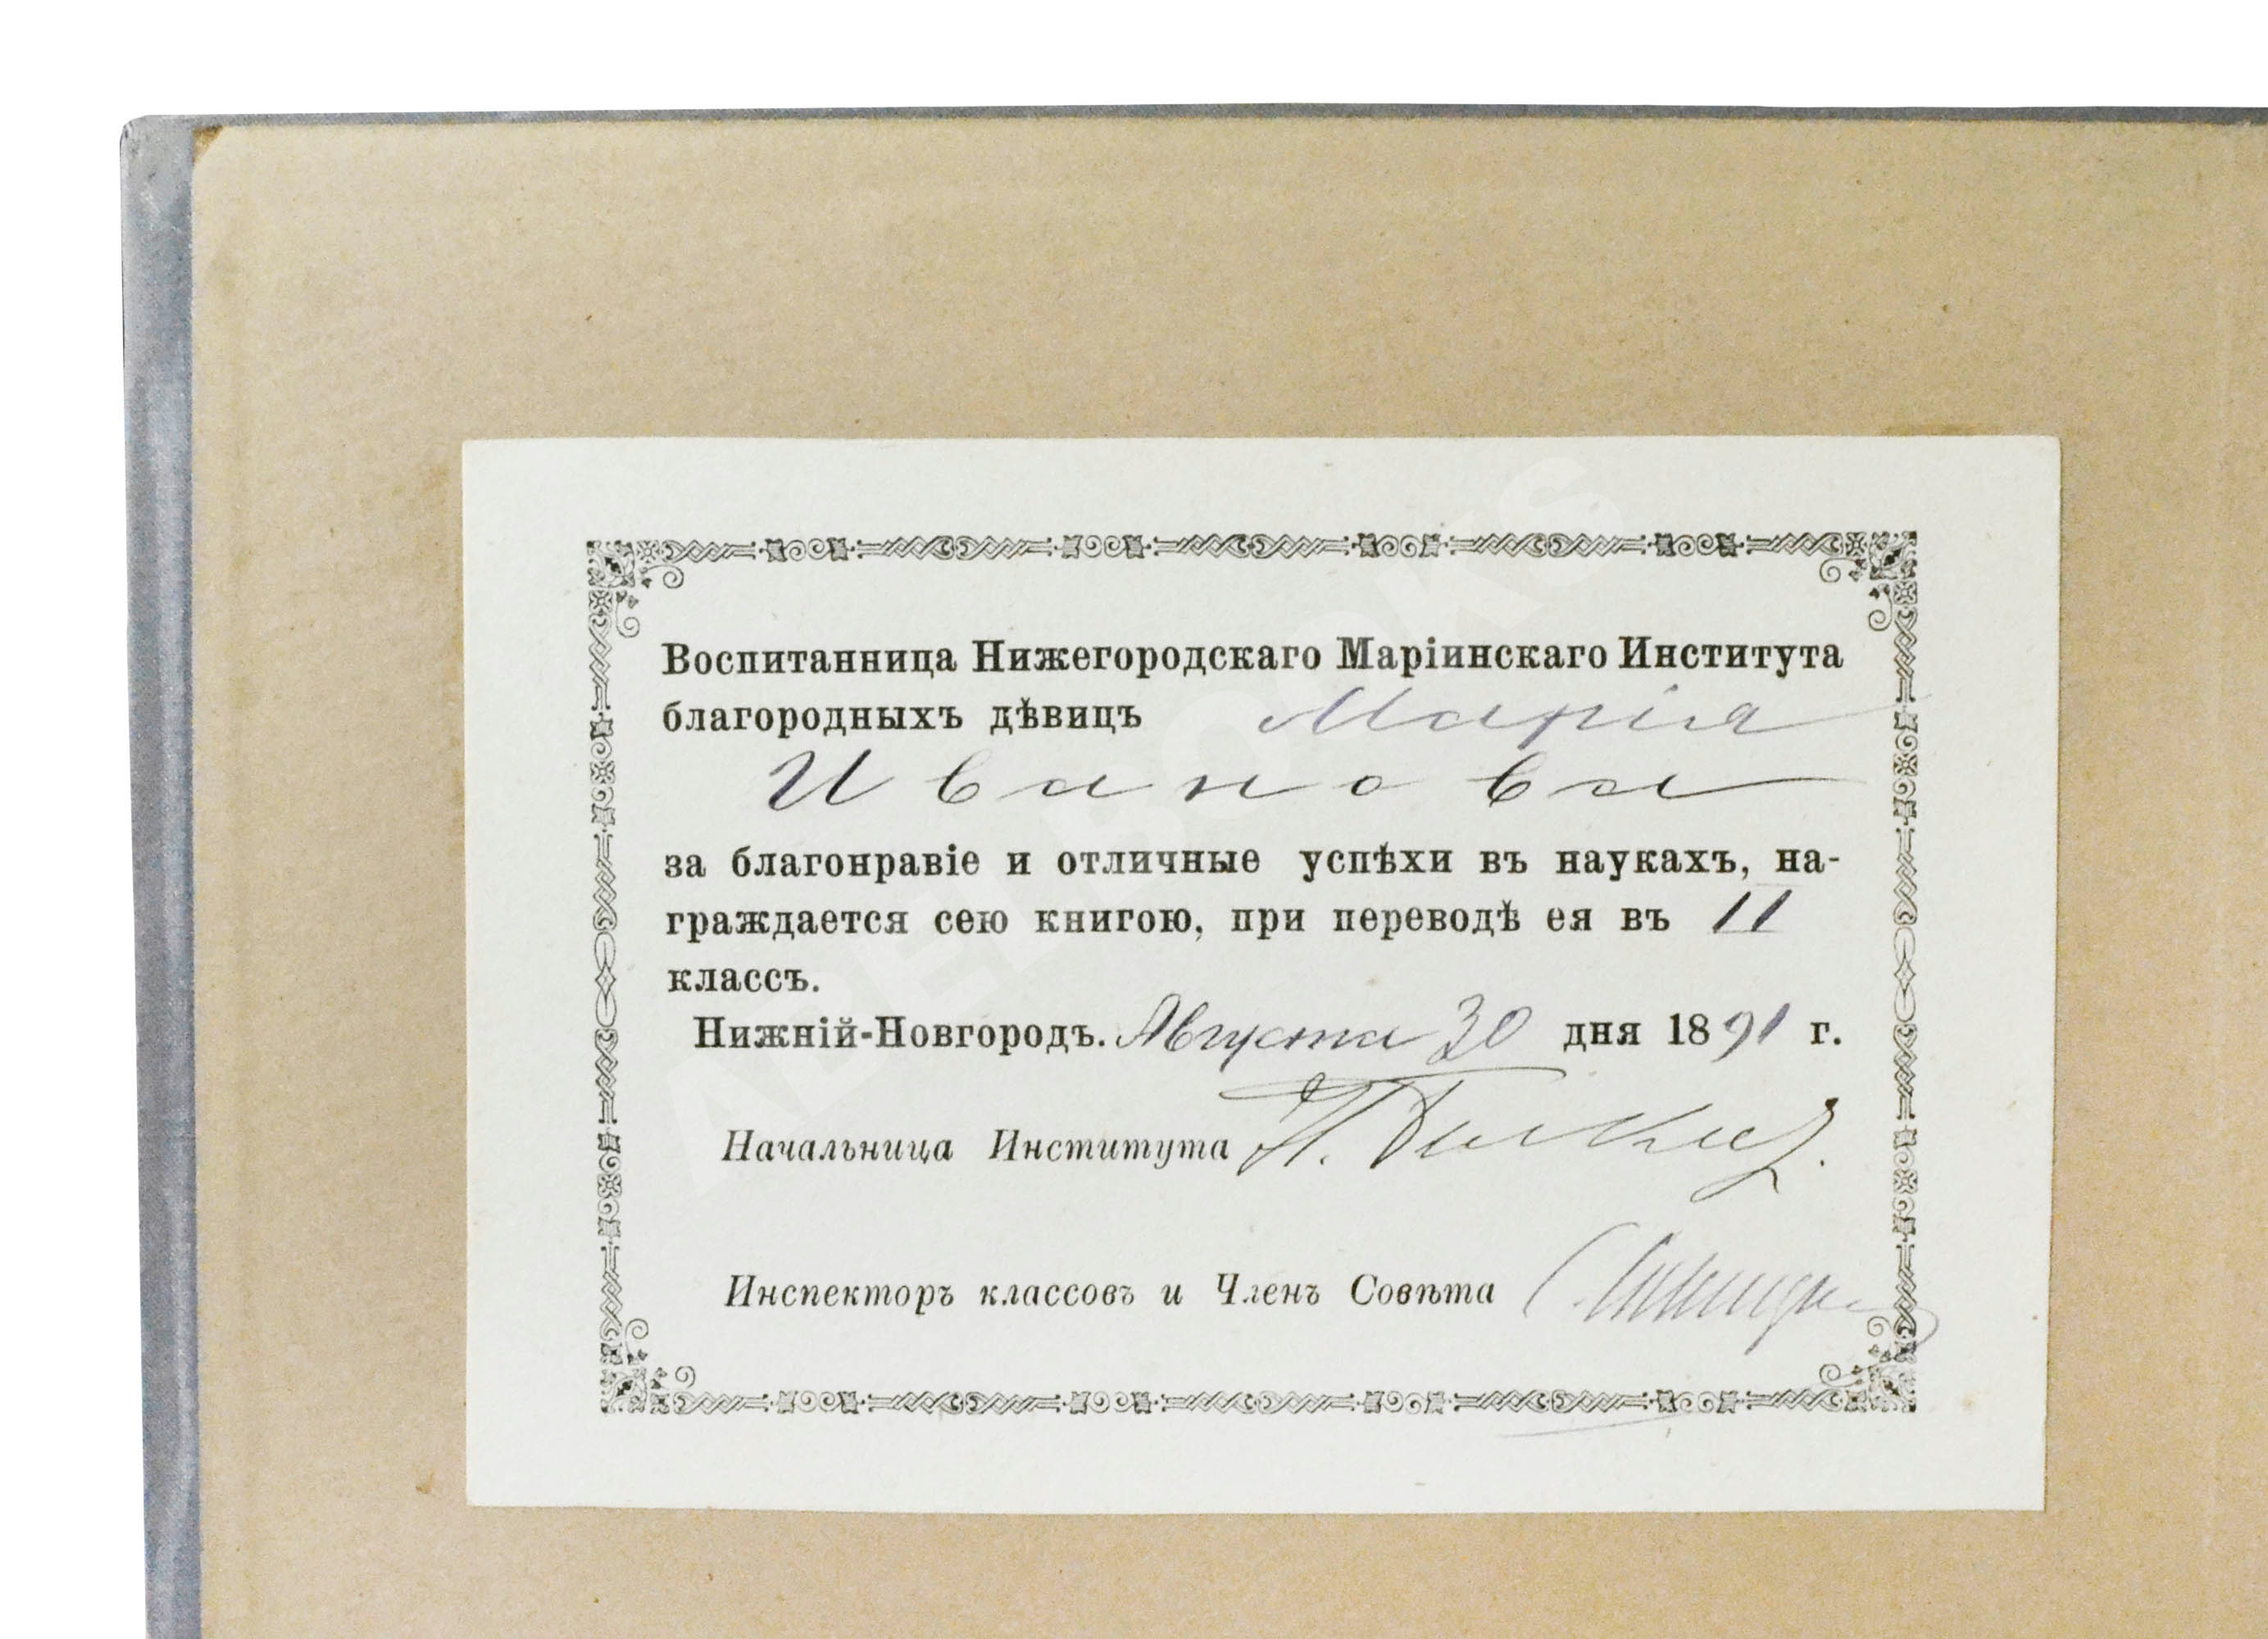 Воспитанница Нижегородскаго Маріинскаго Института
благородныхъ дѣвицъ Марія
Иванова
за благонравіе и отличные успѣхи въ наукахъ, на-
граждается сею книгою, при переводѣ ея въ II
классъ.
Нижній-Новгородъ. Августа 30 дня 1891 г.
Начальница Института
Инспекторъ классовъ и Членъ Совѣта
ABELBOOKS